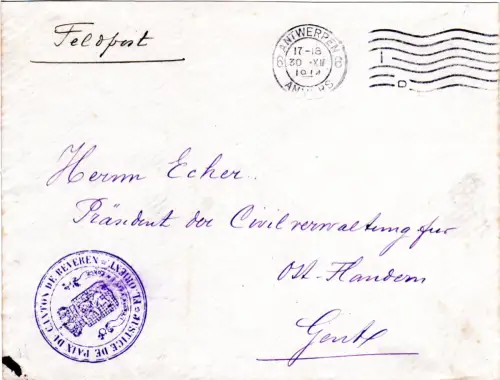 Feldpost
ANTWERPEN
6 6
17-18
30 XII
1914
ANVERS
Herrn Ecker.
Präsident der Civilverwaltung für
Ost-Flandern
Gent
JUSTICE DE PAIX DU CANTON DE BEVEREN
FL. ORIENT.